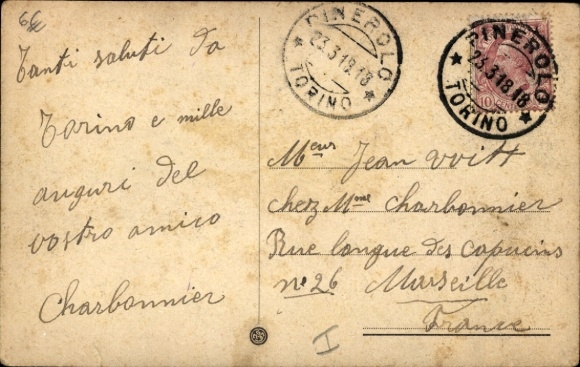 Tanti saluti da
Torino e mille
auguri del
vostro amico
Charbonnier
PINEROLO
23.3.18.18
★ TORINO ★
PINEROLO
23.3.18.18
★ TORINO ★
10
Meur Jean
chez Mme Charbonnier
Rue longue des Capucins
no 26 Marseille
France
I